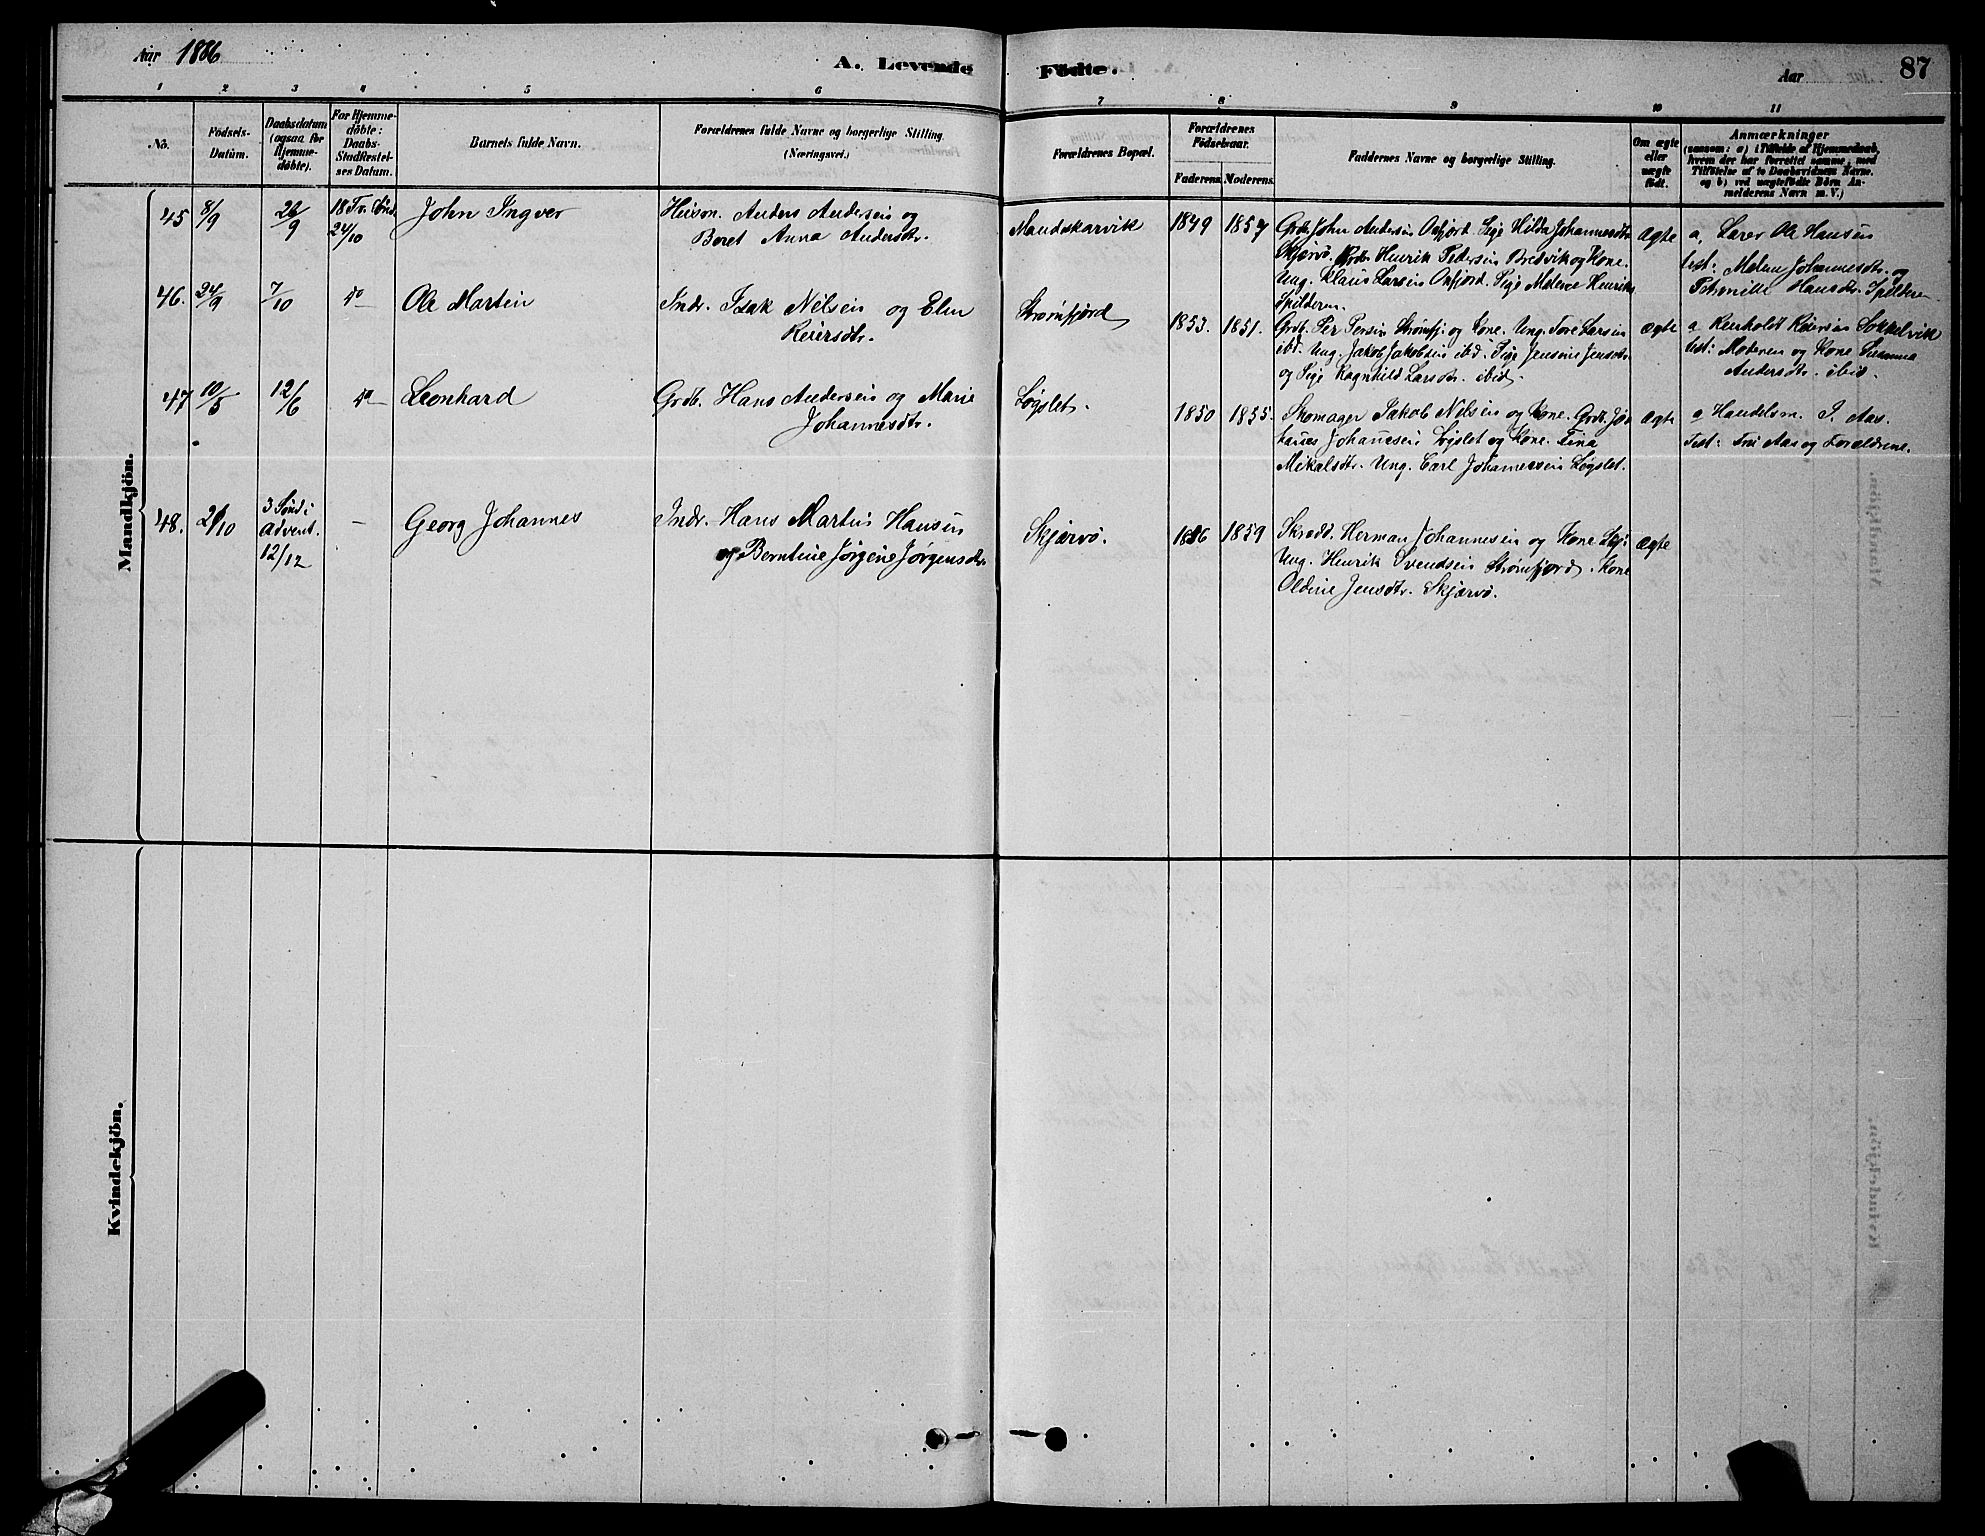 Aar 1886
A. Levende Födte.
Aar
87
1 2 3 4 5 6 7 8 9 10 11
No.
Födsels-
Datum.
Daabsdatum
(ogsaa for
Hjemme-
døbte).
For Hjemme-
døbte:
Daabs-
Stadfæstel-
ses Datum.
Barnets fulde Navn.
Forældrenes fulde Navne og borgerlige Stilling.
(Næringsvei.)
Forældrenes Bopæl.
Forældrenes
Födselsaar.
Faderens. Moderens.
Faddernes Navne og borgerlige Stilling.
Om ægte
eller
uægte
født.
Anmærkninger
(saasom: a) i Tilfælde af Hjemmedaab,
hvem der har forrettet samme, med
Tilføielse af to Daabsvidners Navne.
og b) ved uægtefødte Börn An-
melderens Navn m. V.)
Mandkjön.
45 8/9 26/9 18 Tr. Sönd. 24/10 John Ingver
Anders Andersen og
Beret Anna Andersdtr.
Mandskarvik 1849 1857
Grdb. John Andersen Oxfjord. Pige Hilda Johannesdtr
Skjærvö. Grdbr. Henrik Pedersen Bredvik og Kone.
Ung. Klaus Larsen Oxfjord. Pige Henriks
Spilderen.
Ægte
a, Lærer Ole Hansen
test: Johannesdtr. og
Hansdtr.
46. 24/9 7/10 do Ole Martin
Indr. Isak Nilsen og Elen
Reiersdtr.
Strømfjord 1853. 1851.
Grdb. Per Persen Strømfj. og Kone. Ung. Tore Larsen
ibd. Ung. Jakob Jakobsen ibd. Pige Jensine Jensdtr.
og Pige Ragnhild Larsdtr. ibid.
ægte
a Renholdt Reiersen Sokkelvik
test: Moderen og Kone Susanna
Andersdtr. ibid.
47 10/5 12/6 do Leonhard
Grdb. Hans Andersen og Marie
Johannesdtr.
Løgslet. 1850 1855.
Skomager Jakob Nilsen og Kone. Grdb. Jo-
hannes Johannesen Løgslet og Kone. Tina
Mikalsdtr. Ung. Carl Johannesen Løgslet.
ægte
a Handelsm. J. Aas.
Test: Fru Aas og Forældrene.
48. 21/10 3 Sönd. i Advent. 12/12 - Georg Johannes
Indr. Hans Martin Hansen
og Berntine Jørgine Jørgensdtr.
Skjærvø. 1859
Skrædd. Herman Johannesen og Kone Skj.
Ung. Henrik Svendsen Strømfjord. Kone
Oldine Jensdtr. Skjærvö.
ægte
Kvindekjön.